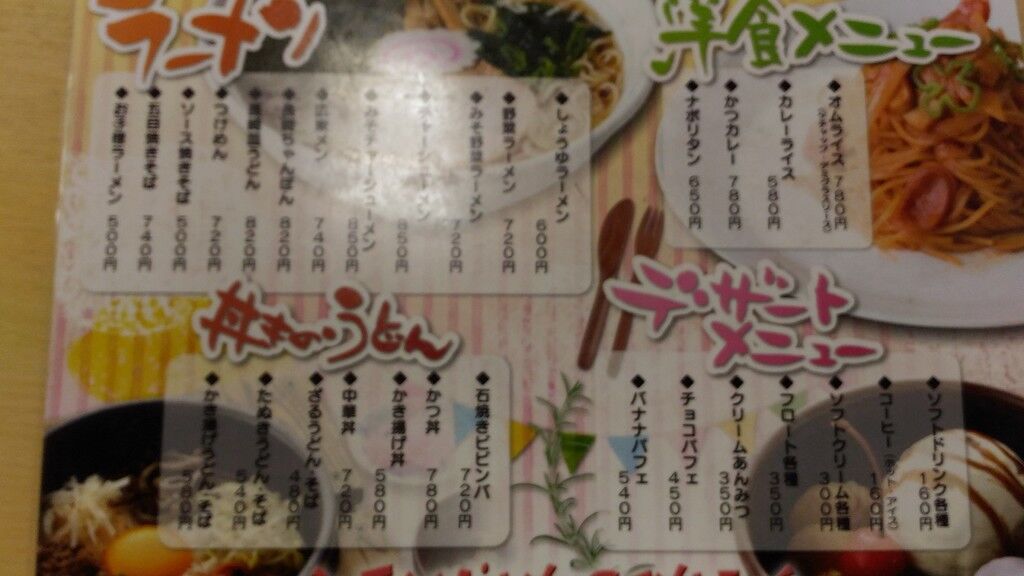 ラーメン
◆しょうゆラーメン 600円
◆野菜ラーメン 720円
◆みそ野菜ラーメン 720円
◆チャーシューメン 850円
850円
メン 740円
820円
うどん 820円
◆つけめん 720円
◆ソース焼きそば 500円
焼きそば 740円
ラーメン 600円
洋食メニュー
◆オムライス 780円
◆カレーライス 580円
◆かつカレー 780円
◆ナポリタン 650円
丼もの・うどん
◆石焼きビビンバ 720円
◆かつ丼 780円
◆かき揚げ丼 580円
◆中華丼 720円
◆ざるうどん・そば 490円
◆たぬきうどん・そば 540円
◆かき揚げうどん・そば
デザートメニュー
◆ソフトドリンク各種 160円
◆コーヒー(ホット・アイス) 160円
◆ソフトクリーム各種 300円
◆フロート各種 350円
◆クリームあんみつ 350円
◆チョコパフェ 450円
◆バナナパフェ 540円